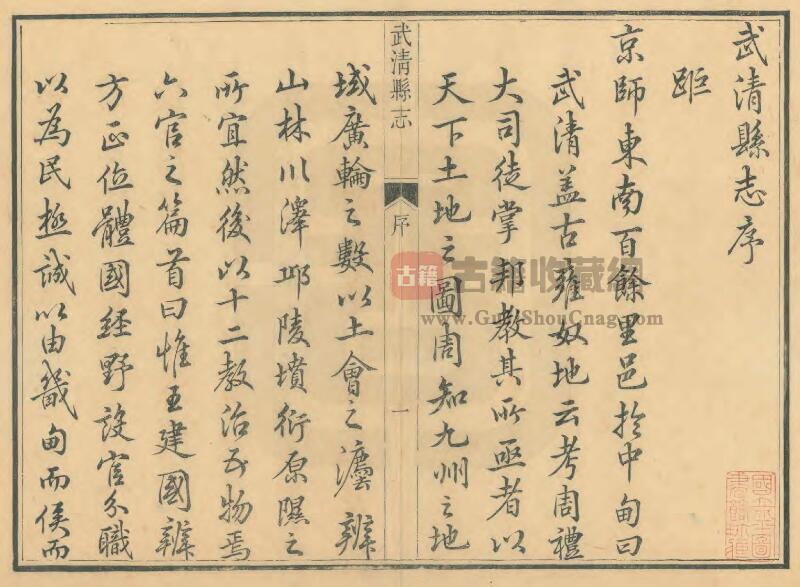 武清縣志序
距
京師東南百餘里邑於中甸曰
武清盖古雍奴地云考周禮
大司徒掌邦教其所亟者以
天下土地之圖周知九州之地
武清縣志
序
一
域廣輪之數以土會之灋辨
山林川澤邱陵墳衍原隰之
所宜然後以十二教治民物焉
六官之篇首曰惟王建國辨
方正位體國經野設官分職
以為民極誠以由畿甸而侯而
古籍
古籍收藏網
www.GuJiShouCnag.com